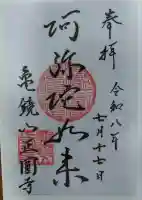 奉拝
令和八年
七月十七日
阿弥陀如来
亀鏡山正圓寺